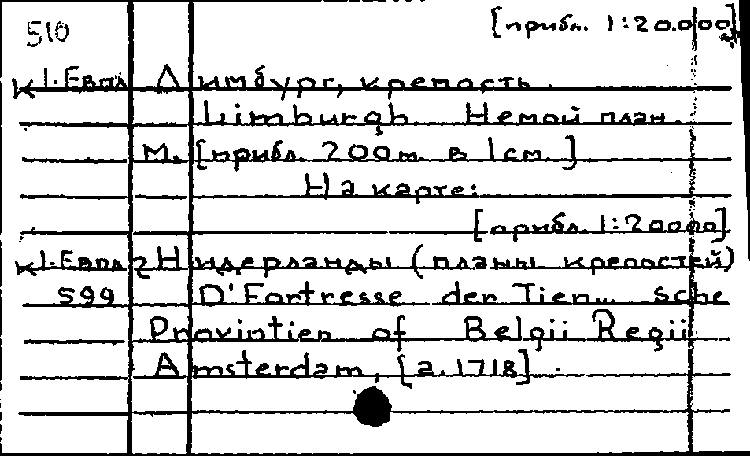 510 [прибл. 1:20.000]
К 1-Евпл Лимбург, крепость.
Limburgh. Немой план.
М. [прибл. 200м. в 1см.]
На карте:
[прибл. 1:20000]
К 1-Евпл 2 Нидерланды (планы крепостей)
599 D'Fortresse der Tien... sche
Provintien of Belgii Regii
Amsterdam, [a. 1718].